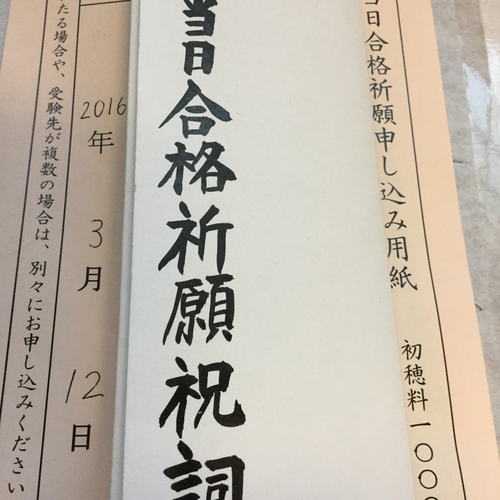 当日合格祈願申し込み用紙
初穂料一〇〇
当日合格祈願祝詞
2016年3月12日
たる場合や、受験先が複数の場合は、別々にお申し込みください